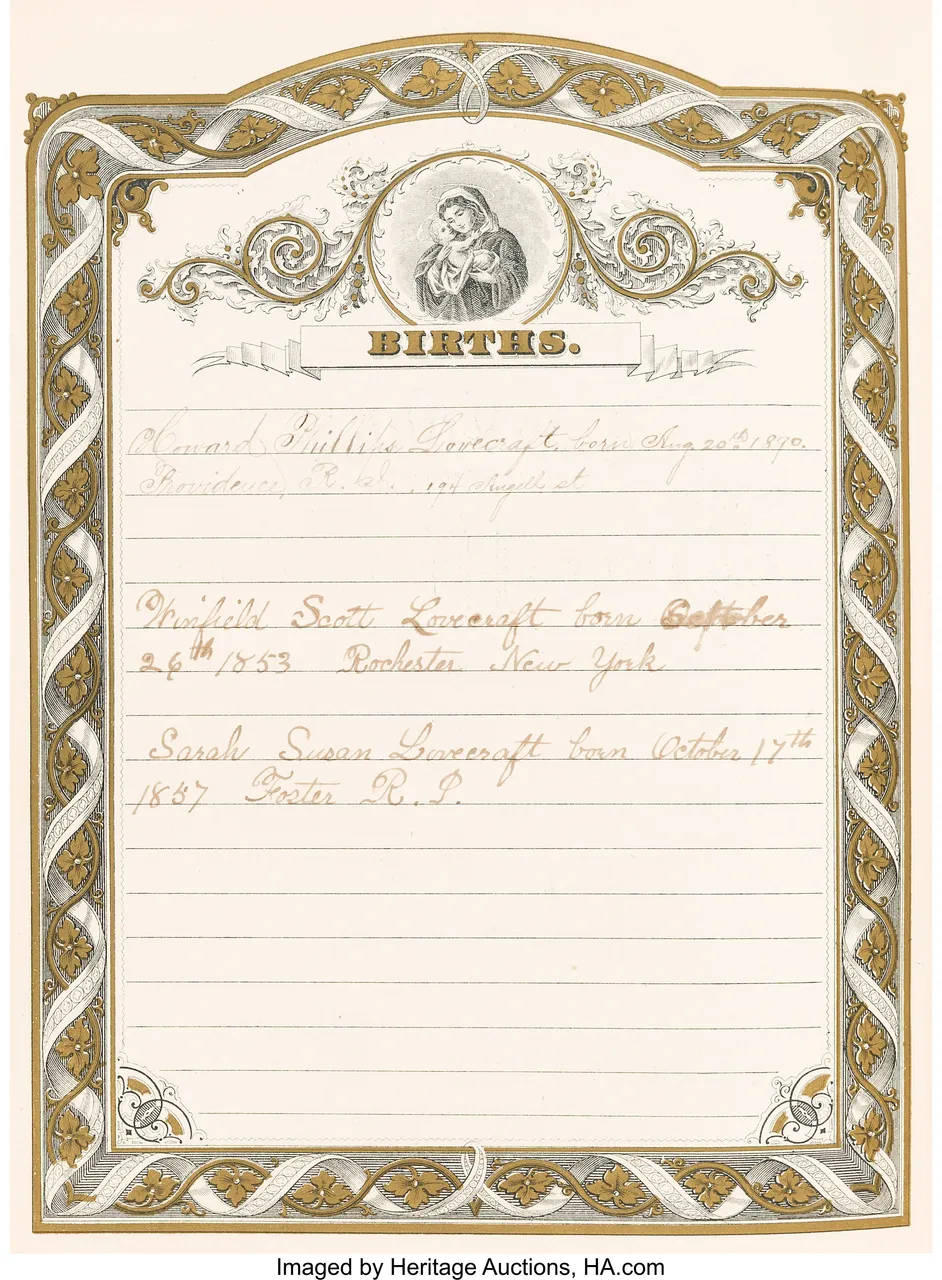 BIRTHS.
Howard Phillips Lovecraft, born Aug. 20th 1890.
Providence, R. I., 194 Angell st
Winfield Scott Lovecraft born October
26th 1853 Rochester New York
Sarah Susan Lovecraft born October 17th
1857 Foster R. I.
Imaged by Heritage Auctions, HA.com